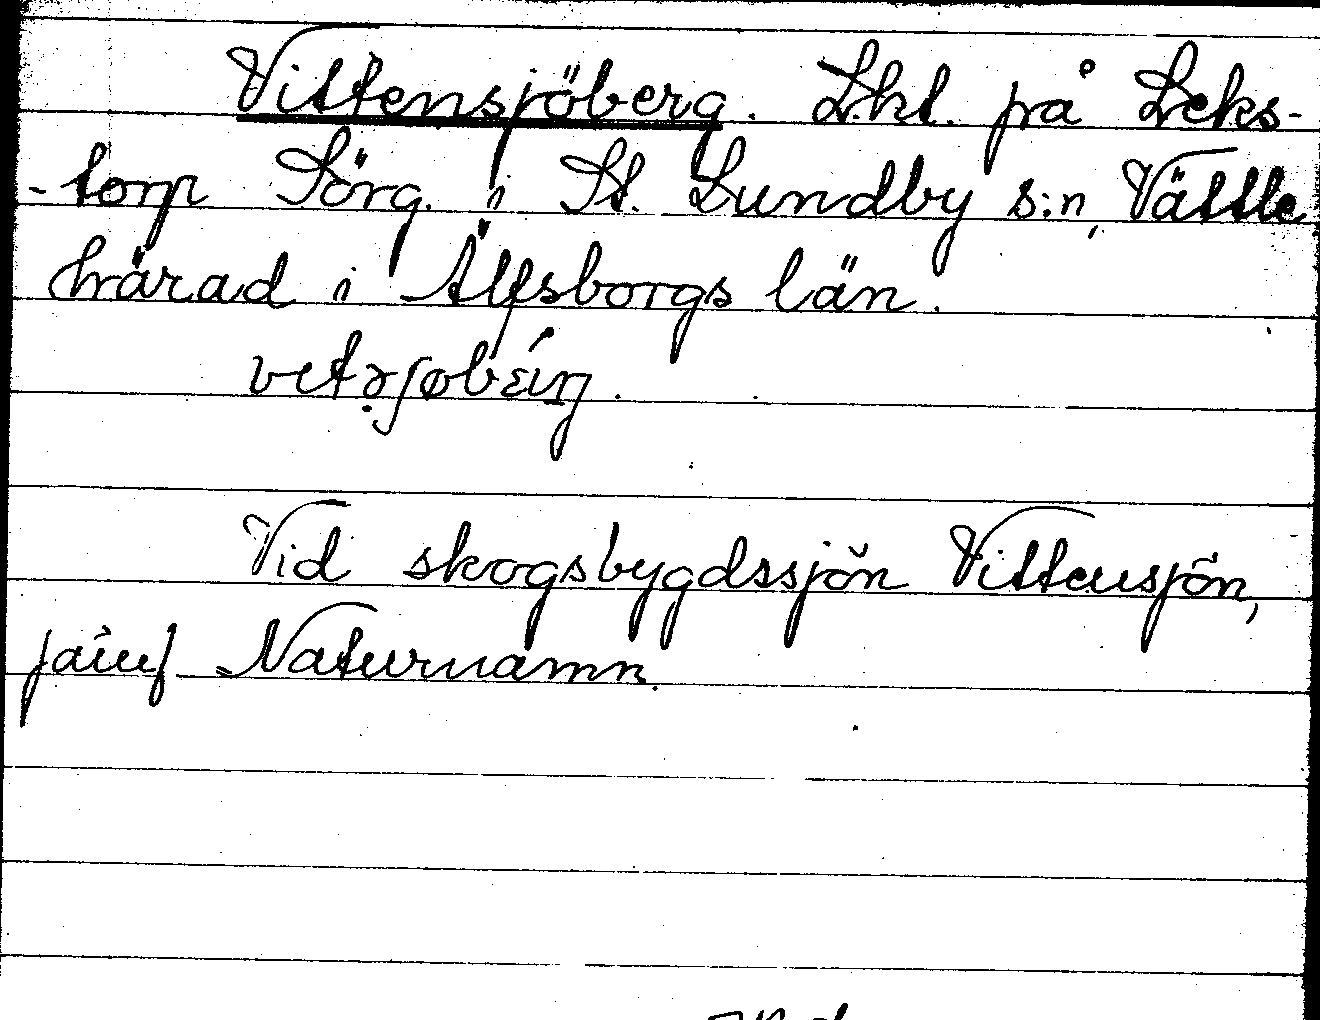 Vittensjöberg. Lkl. på Leks-
-torp Sörg. i St. Lundby s:n, Vättle
härad i Älfsborgs län.
Vid skogsbygdssjön Vittensjön,
jämf Naturnamn.